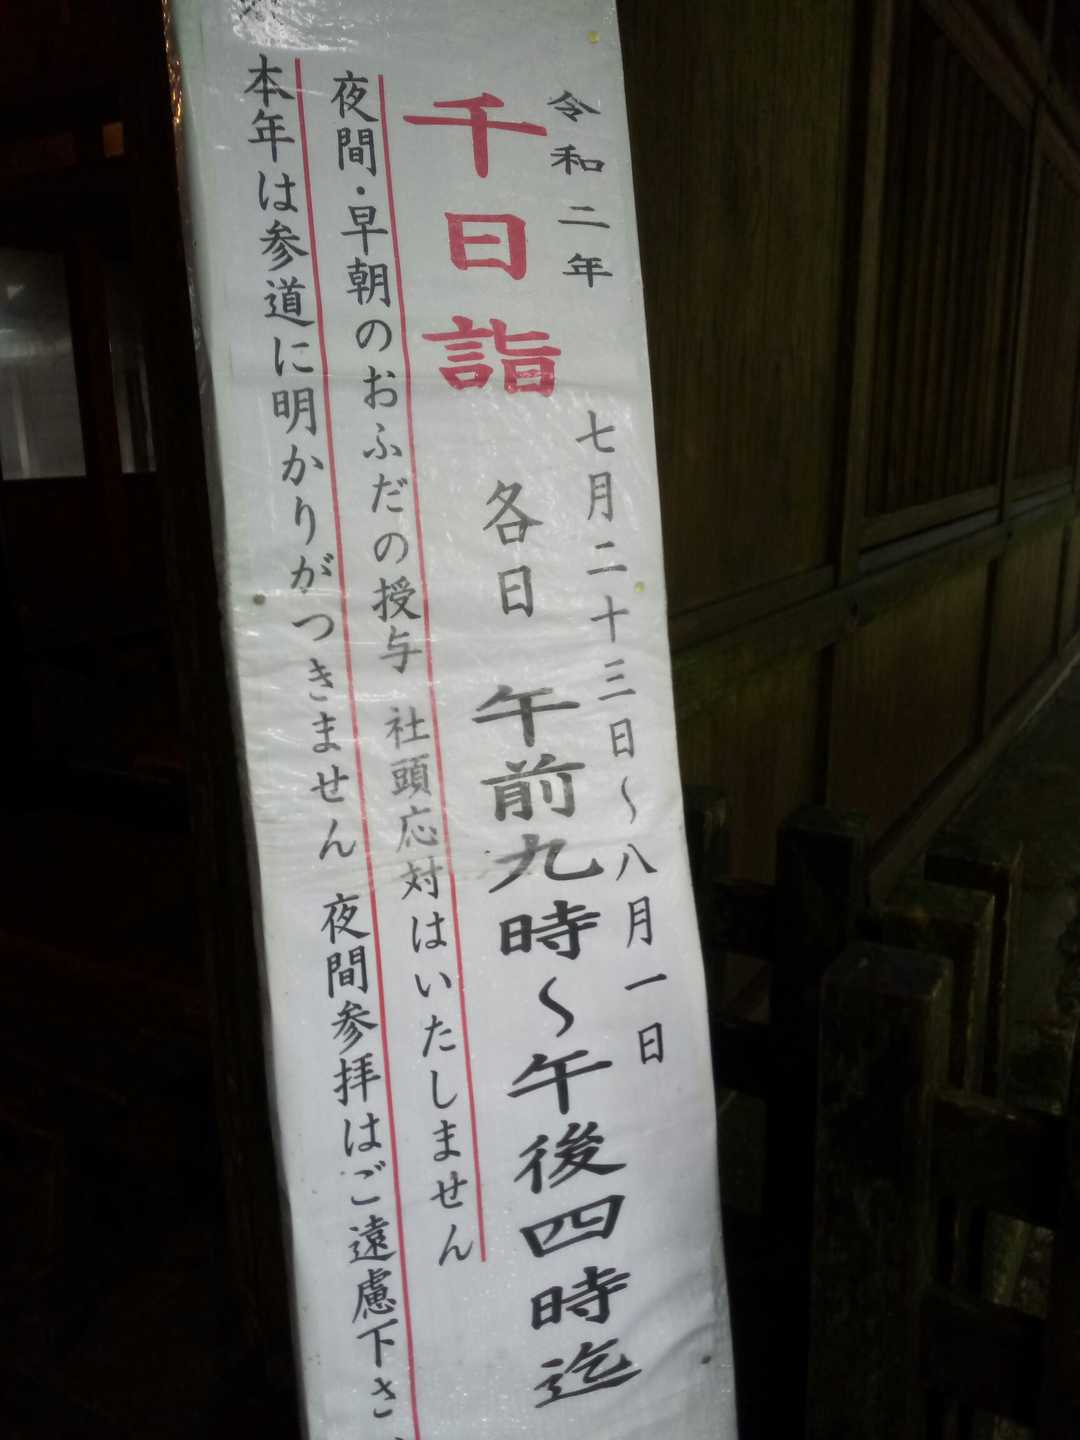 令和二年
七月二十三日〜八月一日
千日詣
各日 午前九時〜午後四時迄
夜間・早朝のおふだの授与 社頭応対はいたしません
本年は参道に明かりがつきません 夜間参拝はご遠慮下さ